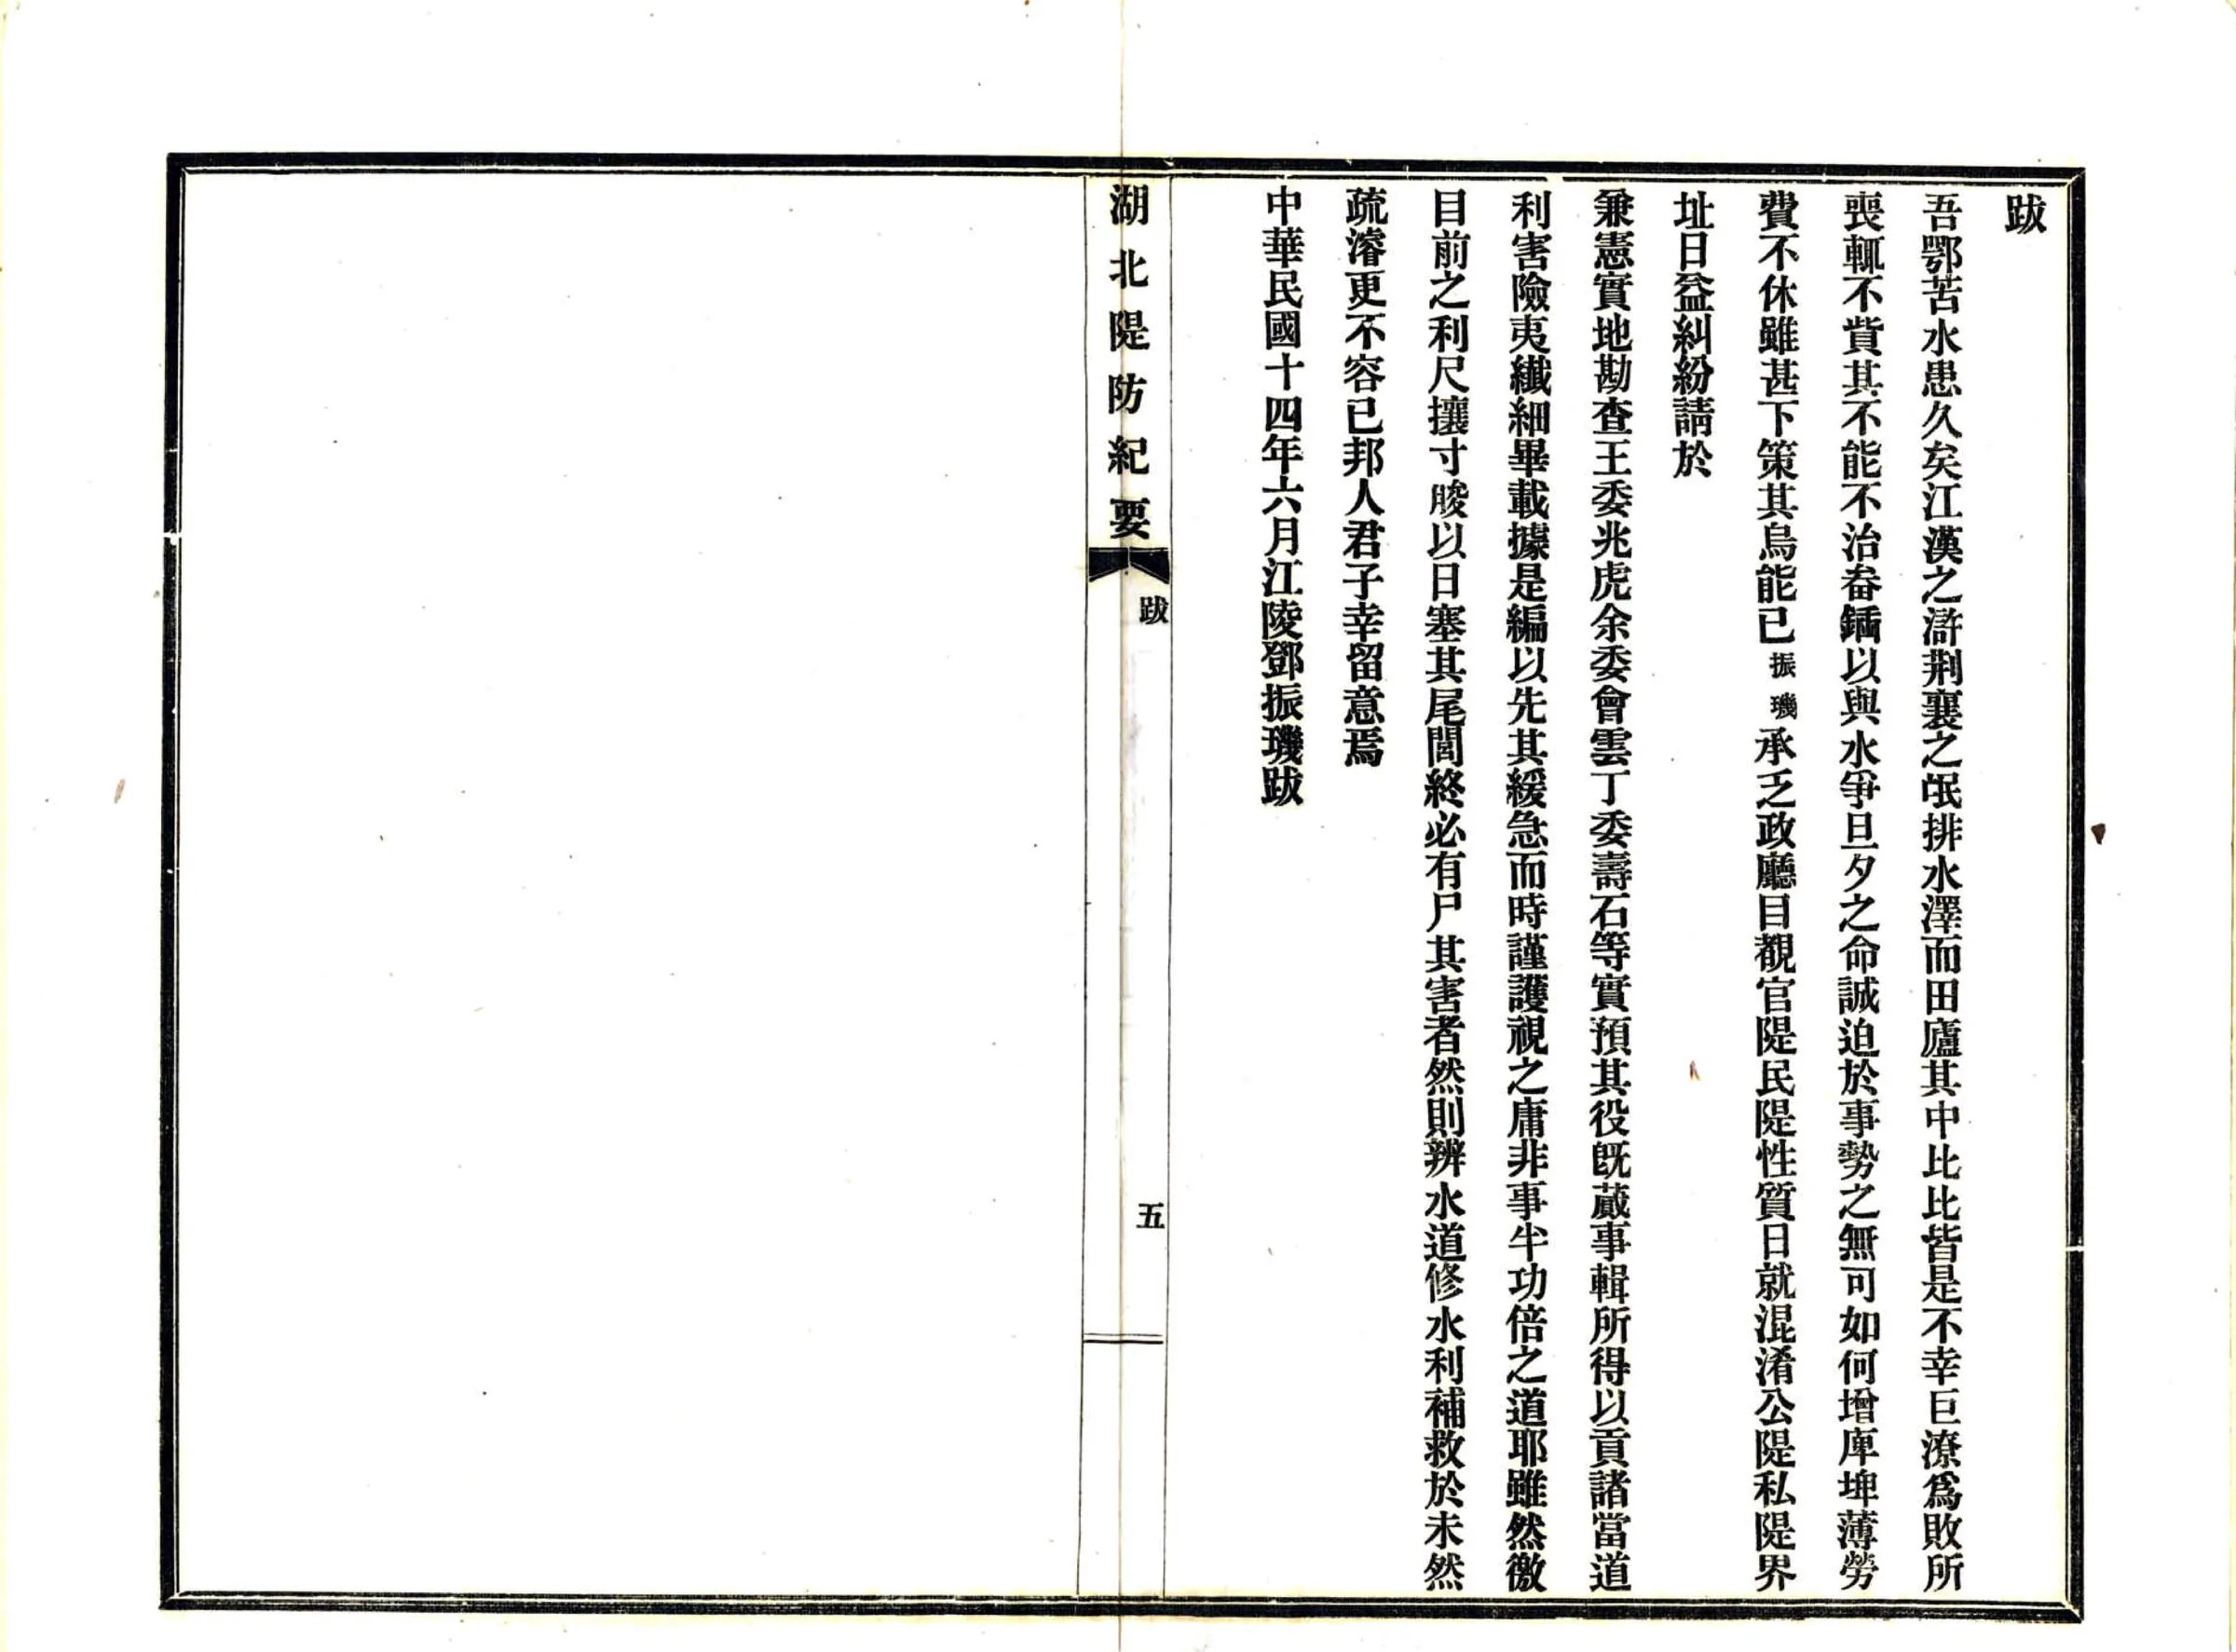 跋
吾鄂苦水患久矣江漢之滸荆襄之氓排水澤而田廬其中比比皆是不幸巨潦爲敗所
喪輒不貲其不能不治畚鍤以與水爭旦夕之命誠迫於事勢之無可如何增庳埤薄勞
費不休雖甚下策其烏能已振璣承乏政廳目覩官隄民隄性質日就混淆公隄私隄界
址日益糾紛請於
兼憲實地勘查王委兆虎余委會雲丁委壽石等實預其役旣蕆事輯所得以貢諸當道
利害險夷纖細畢載據是編以先其緩急而時謹護視之庸非事半功倍之道耶雖然徼
目前之利尺攘寸朘以日塞其尾閭終必有尸其害者然則辨水道修水利補救於未然
疏濬更不容已邦人君子幸留意焉
中華民國十四年六月江陵鄧振璣跋
湖北隄防紀要
跋
五